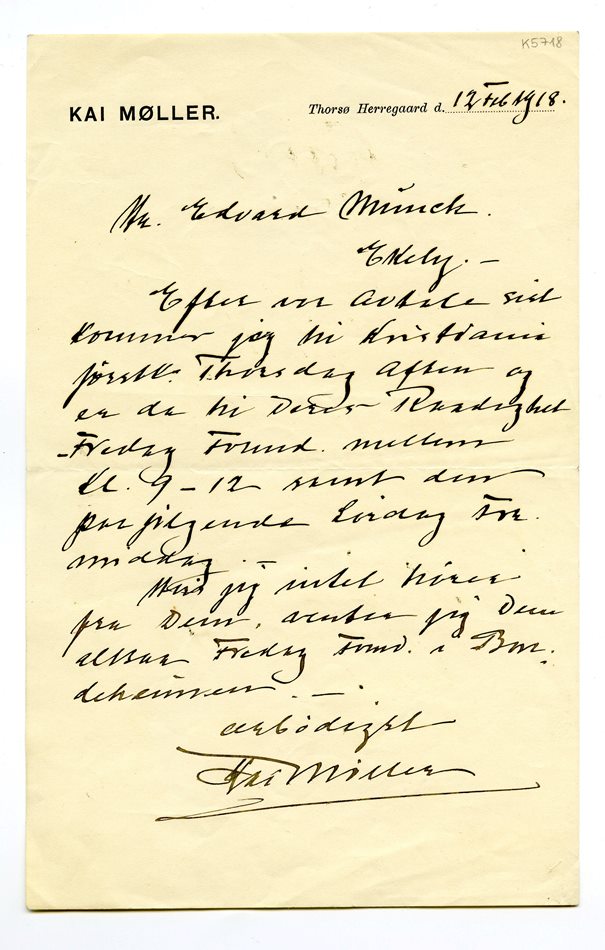 K5718
KAI MØLLER.
Thorsø Herregaard d. 12 Feb 1918.
Hr. Edvard Munch.
Ekely. –
Efter vor Avtale sidst
kommer jeg til Kristiania
førstk. Thorsdag Aften og
er da til Deres Raadighet
– Fredag Formd. mellem
Kl. 9 – 12 samt den
paafølgende Lørdag For
middag. –
Hvis jeg intet hører
fra Dem, venter jeg Dem
altsaa Fredag Formd. i Bon-
deheimen. – .
ærbødigst
Kai Møller